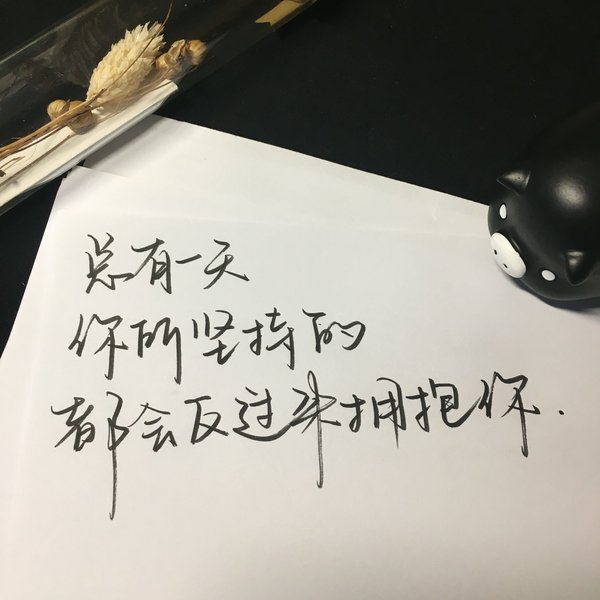 总有一天
你所坚持的
都会反过来拥抱你.